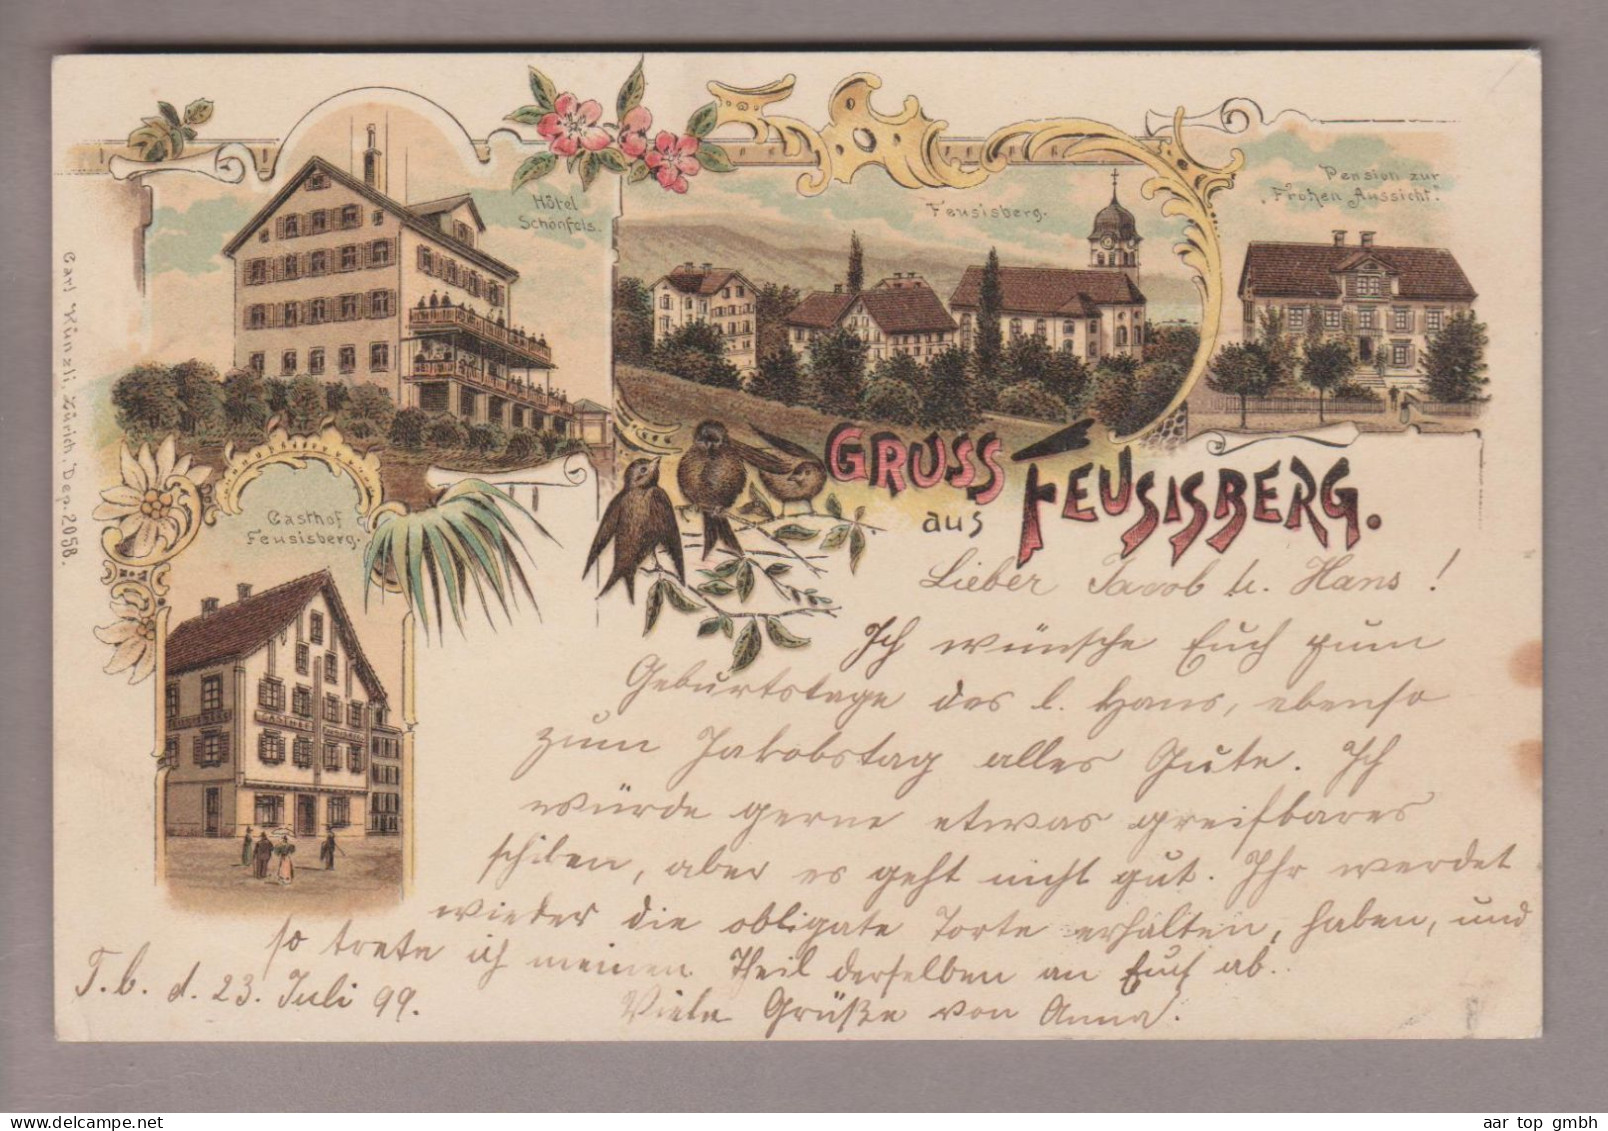 Hôtel
Schönfels.
Feusisberg.
Pension zur
„Frohen Aussicht".
Gasthof
Feusisberg.
Carl Künzli, Zürich, Dep. 2058.
GRUSS
aus FEUSISBERG.
Lieber Jacob u. Hans!
Ich wünsche Euch zum
Geburtstage des l. Hans, ebenso
zum Jakobstag alles Gute. Ich
würde gerne etwas greifbares
schiken, aber es geht nicht gut. Ihr werdet
wieder die obligate Torte erhalten, haben, und
so trete ich meinen Theil derselben an Euch ab.
T. b. d. 23. Juli 99.
Viele Grüße von Anna.
aar top gmbh
www.delcampe.net